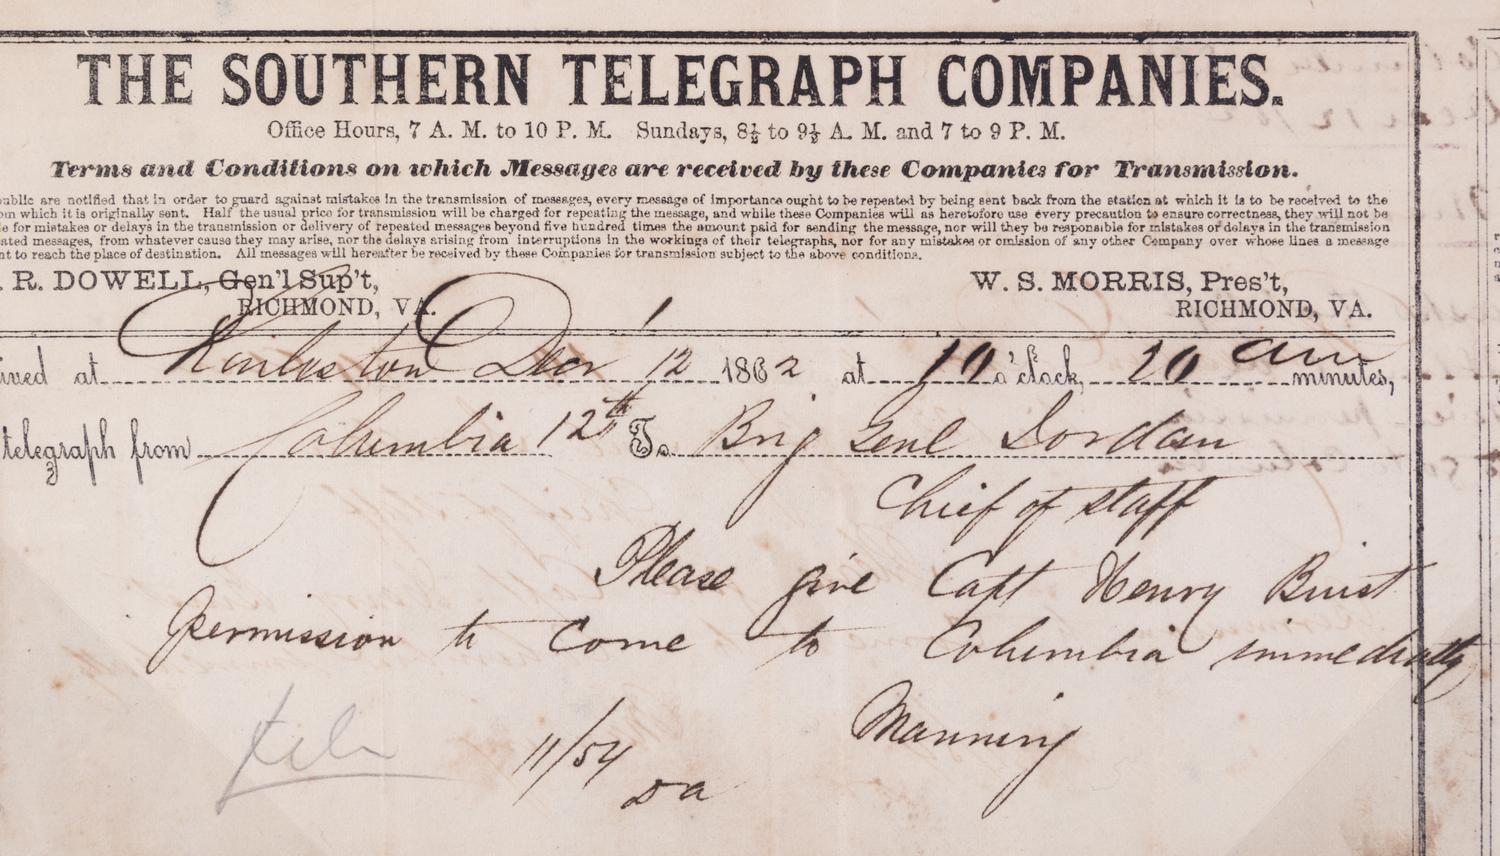 THE SOUTHERN TELEGRAPH COMPANIES.
Office Hours, 7 A. M. to 10 P. M. Sundays, 8½ to 9½ A. M. and 7 to 9 P. M.
Terms and Conditions on which Messages are received by these Companies for Transmission.
ublic are notified that in order to guard against mistakes in the transmission of messages, every message of importance ought to be repeated by being sent back from the station at which it is to be received to the
om which it is originally sent. Half the usual price for transmission will be charged for repeating the message, and while these Companies will as heretofore use every precaution to ensure correctness, they will not be
e for mistakes or delays in the transmission or delivery of repeated messages beyond five hundred times the amount paid for sending the message, nor will they be responsible for mistakes or delays in the transmission
ated messages, from whatever cause they may arise, nor the delays arising from interruptions in the workings of their telegraphs, nor for any mistakes or omission of any other Company over whose lines a message
nt to reach the place of destination. All messages will hereafter be received by these Companies for transmission subject to the above conditions.
. R. DOWELL, Gen'l Sup't, W. S. MORRIS, Pres't,
RICHMOND, VA. RICHMOND, VA.
ived at Dec 12 1862 at 10 o'clock, 20 am minutes,
telegraph from Columbia 12th To Brig Genl Jordan
Chief of staff
Please give Capt Henry Buist
permission to Come to Columbia immediatly
Manning
11/54